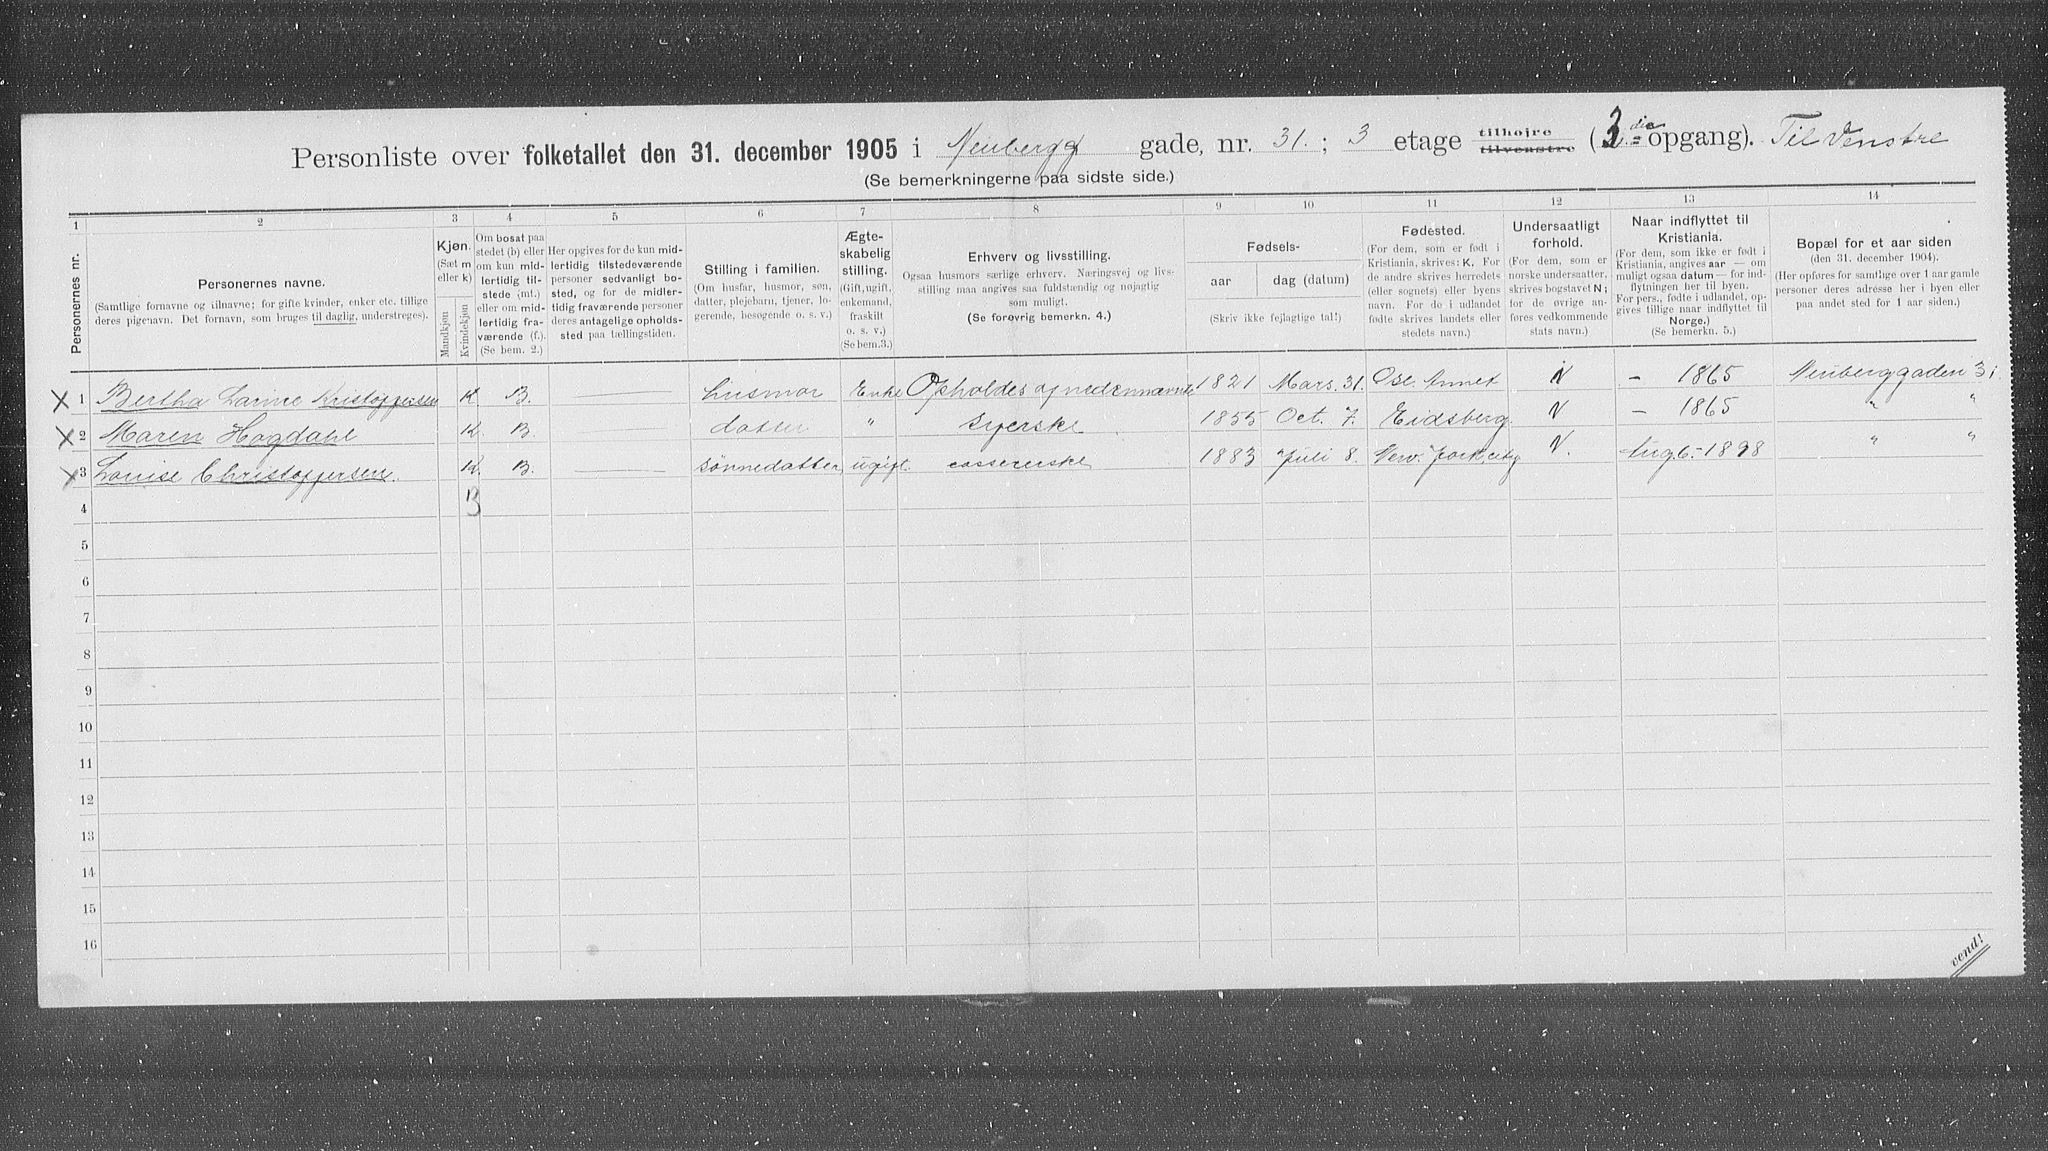 Personliste over folketallet den 31. december 1905 i Neubergg gade, nr. 31. ; 3 etage tilhøjre tilvenstre (3 die opgang). Til Venstre
(Se bemerkningerne paa sidste side.)
1 2 3 4 5 6 7 8 9 10 11 12 13 14
Personernes nr.
Personernes navne.
(Samtlige fornavne og tilnavne; for gifte kvinder, enker etc. tillige
deres pigenavn. Det fornavn, som bruges til daglig, understreges).
Kjøn.
(Sæt m
eller k)
Mandkjøn
Kvindekjøn
Om bosat paa
stedet (b) eller
om kun mid-
lertidig til-
stede (mt.)
eller om mid-
lertidig fra-
værende (f.).
(Se bem. 2.)
Her opgives for de kun mid-
lertidig tilstedeværende
personer sedvanligt bo-
sted, og for de midler-
tidig fraværende personer
deres antagelige opholds-
sted paa tællingstiden.
Stilling i familien.
(Om husfar, husmor, søn,
datter, plejebarn, tjener, lo-
gerende, besøgende o. s. v.)
Ægte-
skabelig
stilling.
(Gift, ugift,
enkemand,
fraskilt
o. s. v.)
(Se bem.3.)
Erhverv og livsstilling.
Ogsaa husmors særlige erhverv. Næringsvej og livs-
stilling maa angives saa fuldstændig og nøjagtig
som muligt.
(Se forøvrig bemerkn. 4.)
Fødsels-
aar dag (datum)
(Skriv ikke fejlagtige tal!)
Fødested.
(For dem, som er født i
Kristiania, skrives: K. For
de andre skrives herredets
(eller sognets) eller byens
navn. For de i udlandet
fødte skrives landets eller
stedets navn.)
Undersaatligt
forhold.
(For dem, som er
norske undersaatter,
skrives bogstavet N;
for de øvrige an-
føres vedkommende
stats navn.)
Naar indflyttet til
Kristiania.
(For dem, som ikke er født i
Kristiania, angives aar — om
muligt ogsaa datum — for ind-
flytningen her til byen.
For pers., fødte i udlandet, op-
gives tillige naar indflyttet til
Norge.)
(Se bemerkn. 5.)
Bopæl for et aar siden
(den 31. december 1904).
(Her opføres for samtlige over 1 aar gamle
personer deres adresse her i byen eller
paa andet sted for 1 aar siden.)
X 1 Bertha Larine Kristoffersen K. B. — husmor Enke Opholdes af nedennævnte 1821 Mars. 31. N — 1865 Neuberggaden 31
X 2 Maren Hogdahl K. B. — datter " Syerske 1855 Oct. 7. Eidsberg. N — 1865 " "
X 3 Louise Christoffersen. K. B. — sønnedatter ugift. cassererske 1883 Juli 8. New. York, city N. Aug 6.-1898 " "
4 3
5
6
7
8
9
10
11
12
13
14
15
16
vend!